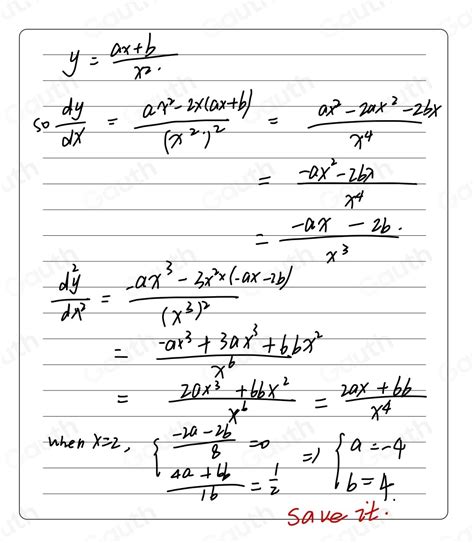 y = (ax+b)/x².
so dy/dx = (ax²-2x(ax+b))/(x²·)² = (ax²-2ax²-2bx)/x⁴
= (-ax²-2bx)/x⁴
= (-ax-2b.)/x³
d²y/dx² = (-ax³-3x²×(-ax-2b))/(x³)²
= (-ax³+3ax³+6bx²)/x⁶
= (2ax³+6bx²)/x⁶ = (2ax+6b)/x⁴
when x=2, { (-2a-2b)/8 =0 => { a=-4
(4a+6b)/16 = 1/2 b=4.
save it.
Gauth